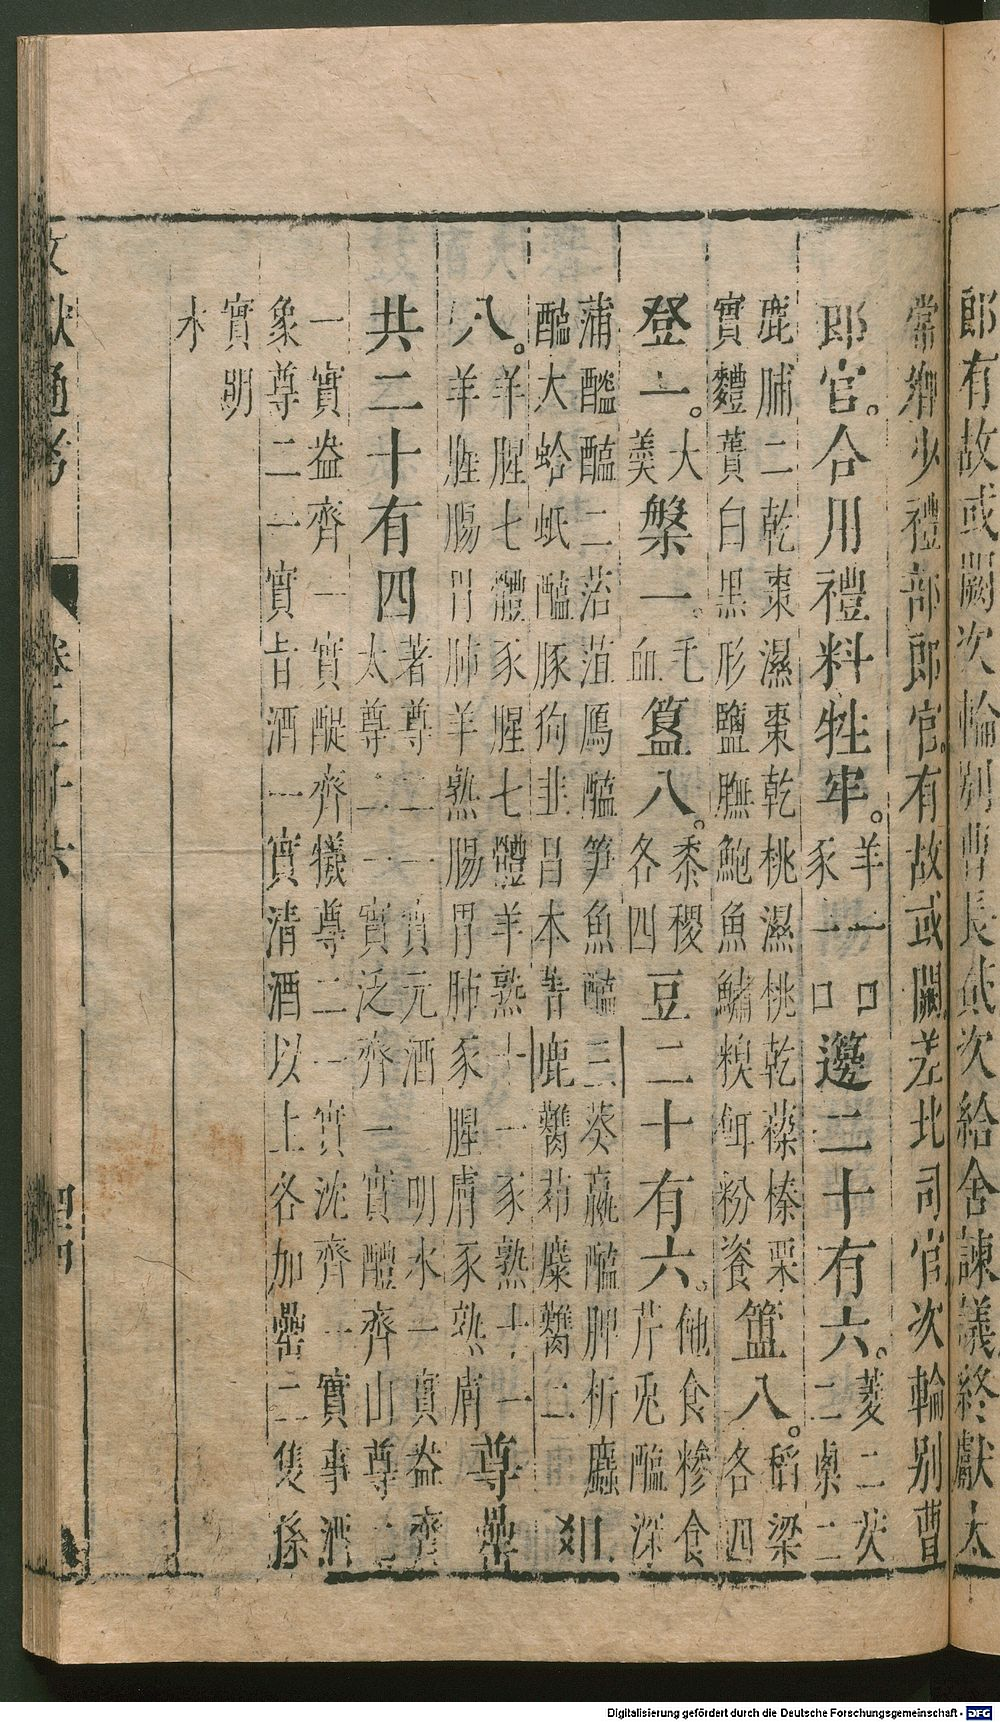 郎有故或闕次輪别曹長貳次給舍諫議終獻太
常卿少禮部郎官有故或闕差北司官次輪别曹
郎官。合用禮料牲牢。羊一口豕一口籩二十有六。菱二芡二㮚二
鹿脯二乾棗濕棗乾桃濕桃乾䕩榛栗
實麷蕡白黒形鹽膴鮑魚鱐糗餌粉餈簠八。稻梁各四
登一。大羹槃一。毛血簋八。黍稷各四豆二十有六。飽食糝食芹兎醢深
蒲醓醢二菭菹鴈醢笋魚醢三葵蠃醢脾析蠯
醢大蛤蚳醢豚狗韭昌本菁鹿臡茆麋臡二俎
八。羊腥七體豕腥七體羊熟十一豕熟十一
羊腥腸胃肺羊熟腸胃肺豕腥膚豕熟膚尊罍
共二十有四著尊二一實元酒一明水一實盎齊
太尊二一實泛齊一實醴齊山尊二
一實盎齊一實醍齊犧尊二一實沈齊一實事酒
象尊二一實昔酒一實清酒以上各加罍二隻係
實明
水
文獻通考